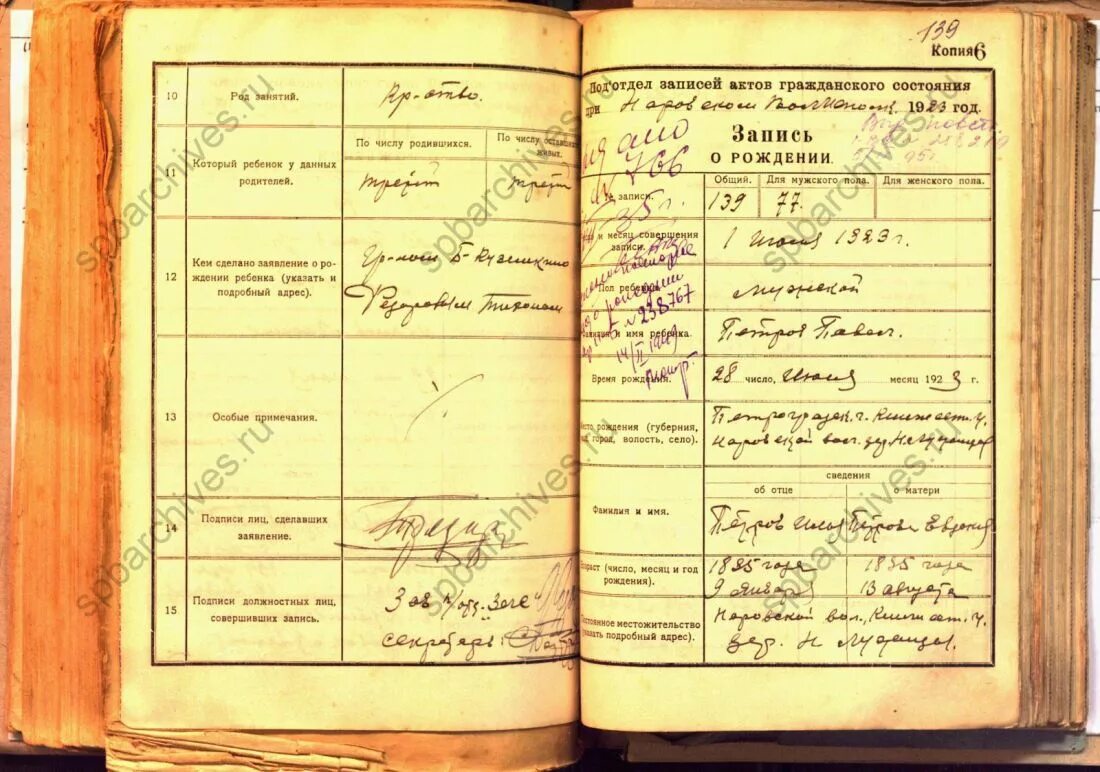 10
Род занятий.
Кр-ство.
11
Который ребенок у данных
родителей.
По числу родившихся.
По числу оставш
живых.
третий
третий
12
Кем сделано заявление о ро-
ждении ребенка (указать и
подробный адрес).
Гр-ном
Федоровым Тихоном
13
Особые примечания.
14
Подписи лиц, сделавших
заявление.
15
Подписи должностных лиц,
совершивших запись.
Зав
секретарь:
139
Копия 6
Под'отдел записей актов гражданского состояния
при Наровском 1923 год.
Запись
О РОЖДЕНИИ.
766
35 г.
№ записи.
Общий.
Для мужского пола.
Для женского пола.
139
77.
и месяц совершения
записи.
1 Июля 1923 г.
Пол ребенка.
мужской
о рождении
№ 238767
14/II 1949
Фамилия и имя ребенка.
Петров Павел.
Время рождения.
28 число, Июня месяц 1923 г.
Место рождения (губерния,
город, волость, село).
Петроградск. г. Кингисеп. у.
Наровской вол. дер.
сведения
об отце
о матери
Фамилия и имя.
Петров Илья
Петрова Евдокия
Возраст (число, месяц и год
рождения).
1895 года
9 января
1895 года
13 августа
Постоянное местожительство
(указать подробный адрес).
Наровской вол., Кингисеп. у.
дер. Н
spbarchives.ru
spbarchives.ru
spbarchives.ru
spbarchives.ru
spbarchives.ru
spbarchives.ru
spbarchives.ru
spbarchives.ru
spbarchives.ru